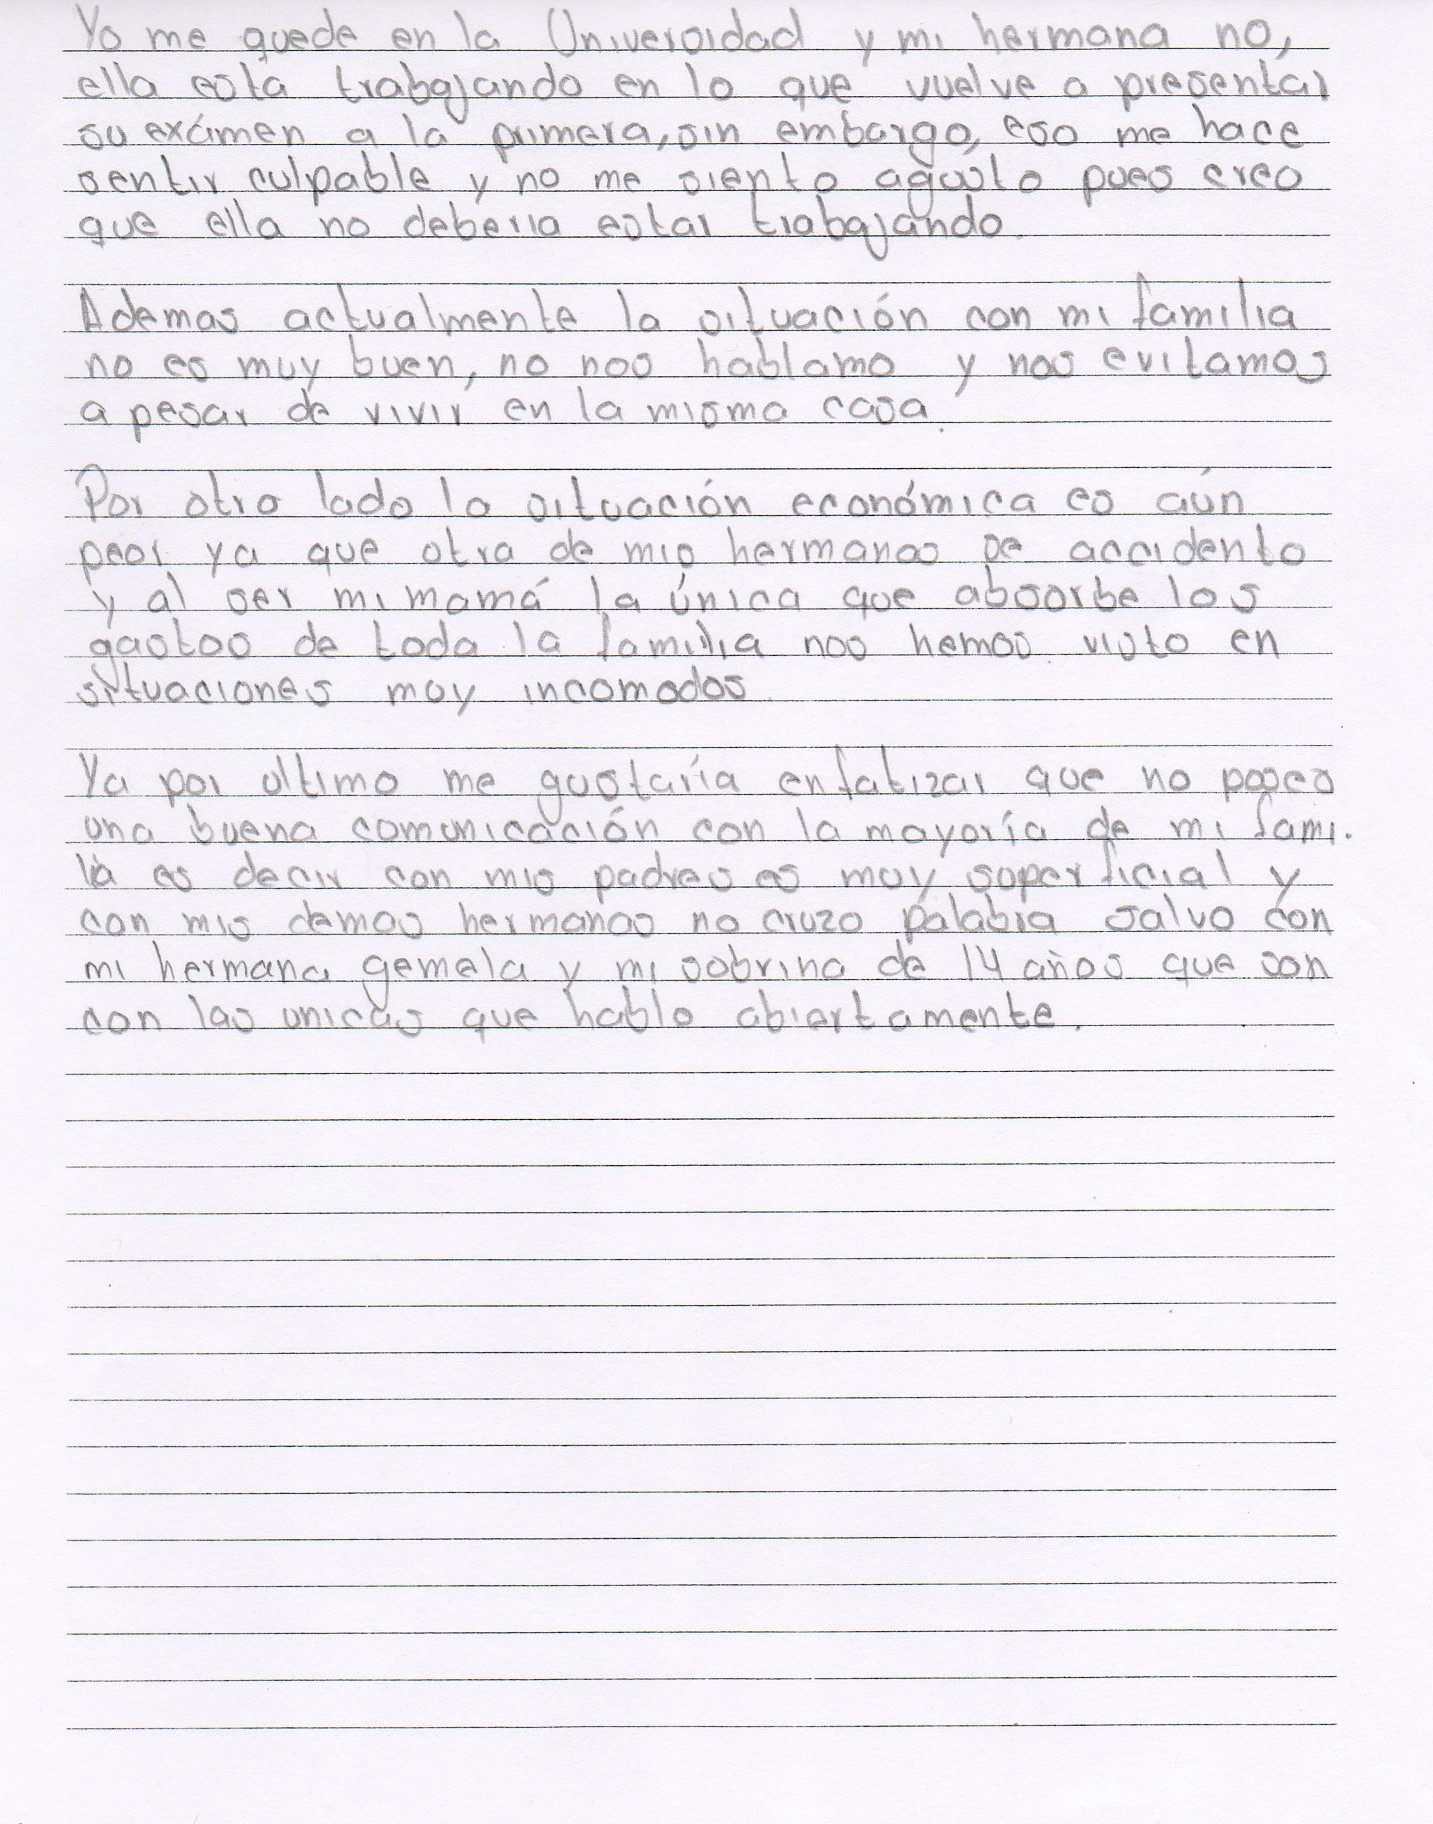 Yo me quede en la Universidad y mi hermana no,
ella esta trabajando en lo que vuelve a presentar
su exámen a la primera, sin embargo, eso me hace
sentir culpable y no me siento agusto pues creo
que ella no deberia estar trabajando.
Ademas actualmente la situación con mi familia
no es muy buen, no nos hablamo y nos evitamos
a pesar de vivir en la misma casa.
Por otro lado la situación económica es aún
peor ya que otra de mis hermanas se accidento
y al ser mi mamá la única que absorbe los
gastos de toda la familia nos hemos visto en
situaciones muy incomodas
Ya por ultimo me gustaría enfatizar que no poseo
una buena comunicación con la mayoría de mi fami.
lia es decir con mis padres es muy superficial y
con mis demas hermanas no cruzo palabra salvo con
mi hermana gemela y mi sobrina de 14 años que son
con las unicas que hablo abiertamente.